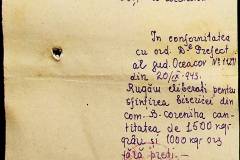 In conformitatea
cu ord. Dlui Prefect
al jud. Oceacov
din 20/IX 943.
Rugăm eliberați pentru
sfințirea bisericei din
com. B-coreniha can-
titatea de 1500 kgr
grâu și 1000 kgr orz
fără preți.-